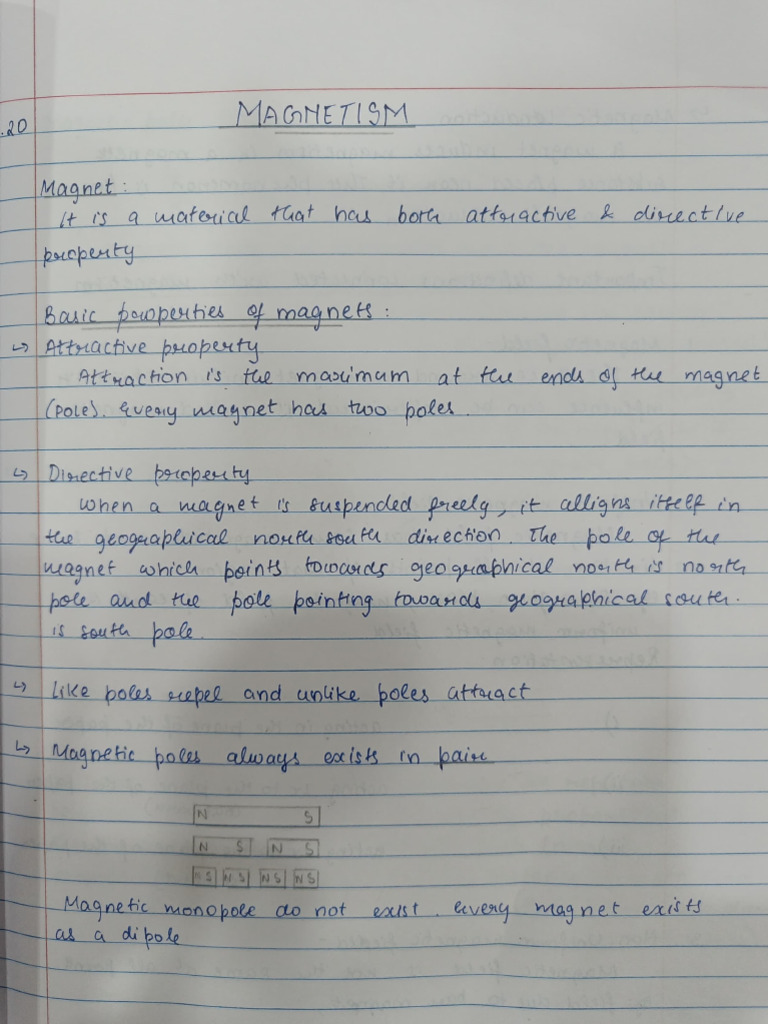 MAGNETISM
.20
Magnet:
It is a material that has both attractive & directive
property
Basic powperties of magnets:
↳ Attractive property
Attraction is the maximum at the ends of the magnet
(pole). Every magnet has two poles.
↳ Directive property
When a magnet is suspended freely, it alligns itself in
the geographical north south direction. The pole of the
magnet which points towards geographical north is north
pole and the pole pointing towards geographical south.
is south pole.
↳ Like poles repel and unlike poles attract
↳ Magnetic poles always exists in pair
N S
N S N S
N S N S N S N S
Magnetic monopole do not exist. Every magnet exists
as a dipole